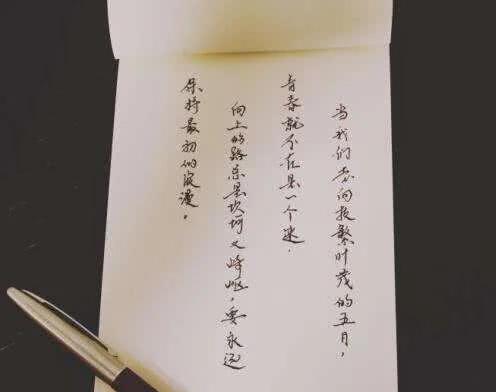 当我们走向枝繁叶茂的五月，
青春就不在是一个迷．
向上的路总是坎坷又峰岖，要永远
保持最初的浪漫。